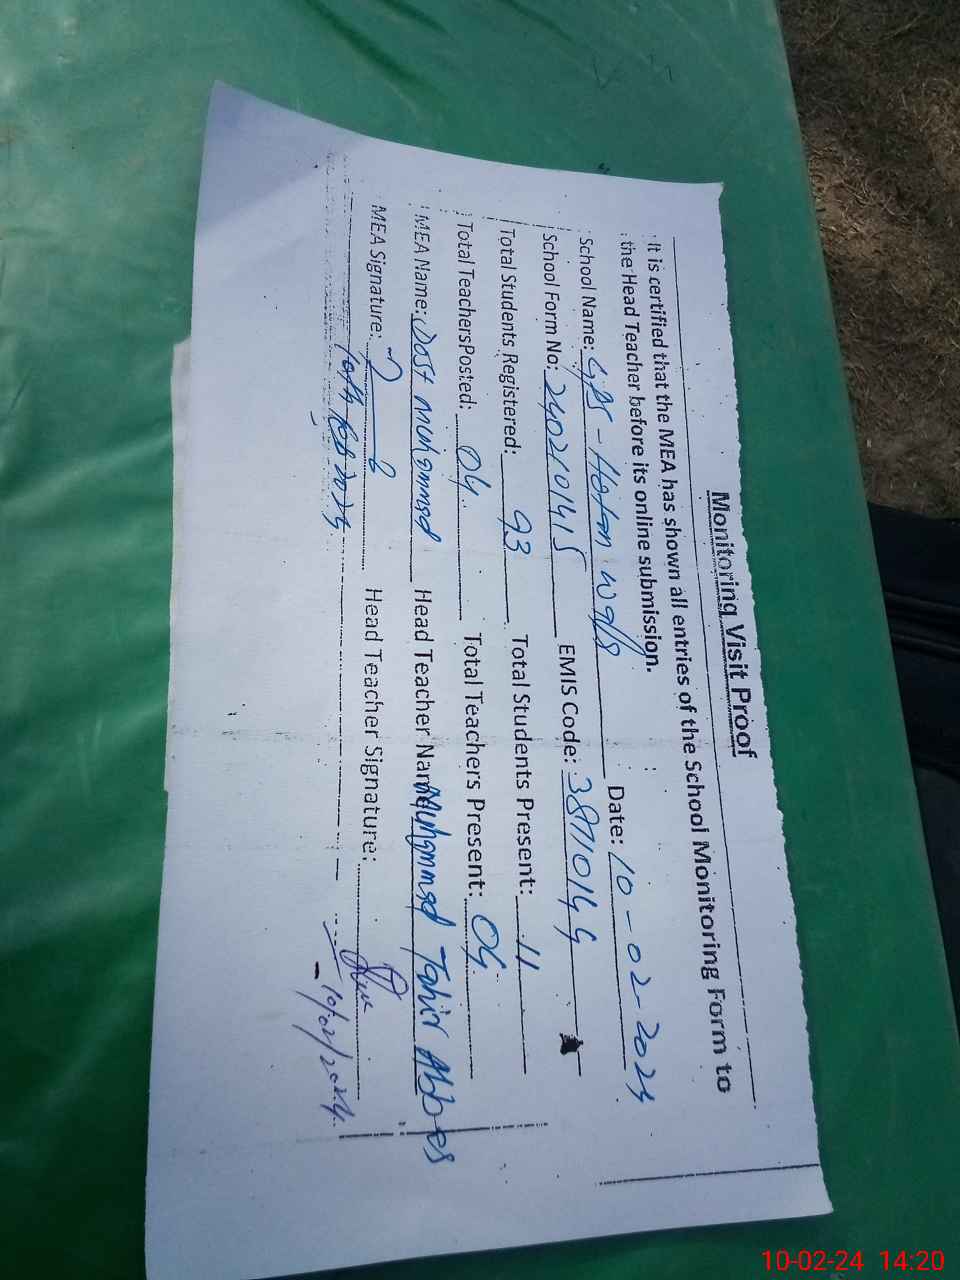 Monitoring Visit Proof
It is certified that the MEA has shown all entries of the School Monitoring Form to
the Head Teacher before its online submission.
School Name: GPS - Hotan Wala Date: 10-02-2024
School Form No: 2402101415 EMIS Code:
Total Students Registered: 93 Total Students Present: 11
Total TeachersPosted: 04 Total Teachers Present: 04
MEA Name: Dost Muhammad Head Teacher Name Muhammad Tahir Abbas
MEA Signature: Head Teacher Signature:
10th Feb 2024 10/02/2024
10-02-24 14:20